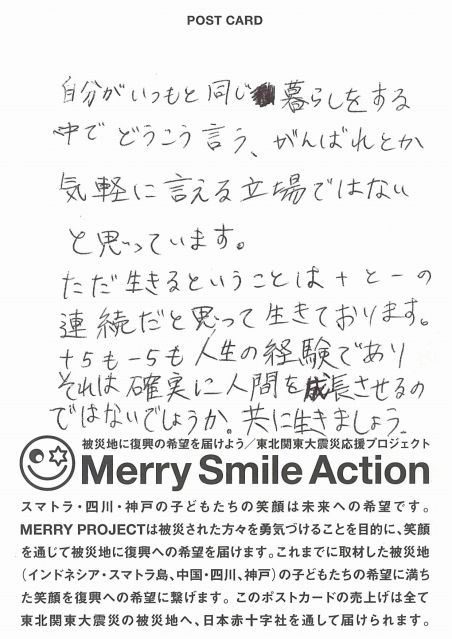 POST CARD
自分がいつもと同じ暮らしをする
中でどうこう言う、がんばれとか
気軽に言える立場ではない
と思っています。
ただ生きるということは+と-の
連続だと思って生きております。
+5も-5も人生の経験であり
それは確実に人間を成長させるの
ではないでしょうか。共に生きましょう。
被災地に復興の希望を届けよう/東北関東大震災応援プロジェクト
Merry Smile Action
スマトラ・四川・神戸の子どもたちの笑顔は未来への希望です。
MERRY PROJECTは被災された方々を勇気づけることを目的に、笑顔
を通じて被災地に復興への希望を届けます。これまでに取材した被災地
(インドネシア・スマトラ島、中国・四川、神戸)の子どもたちの希望に満ち
た笑顔を復興への希望に繋げます。このポストカードの売上げは全て
東北関東大震災の被災地へ、日本赤十字社を通して届けられます。